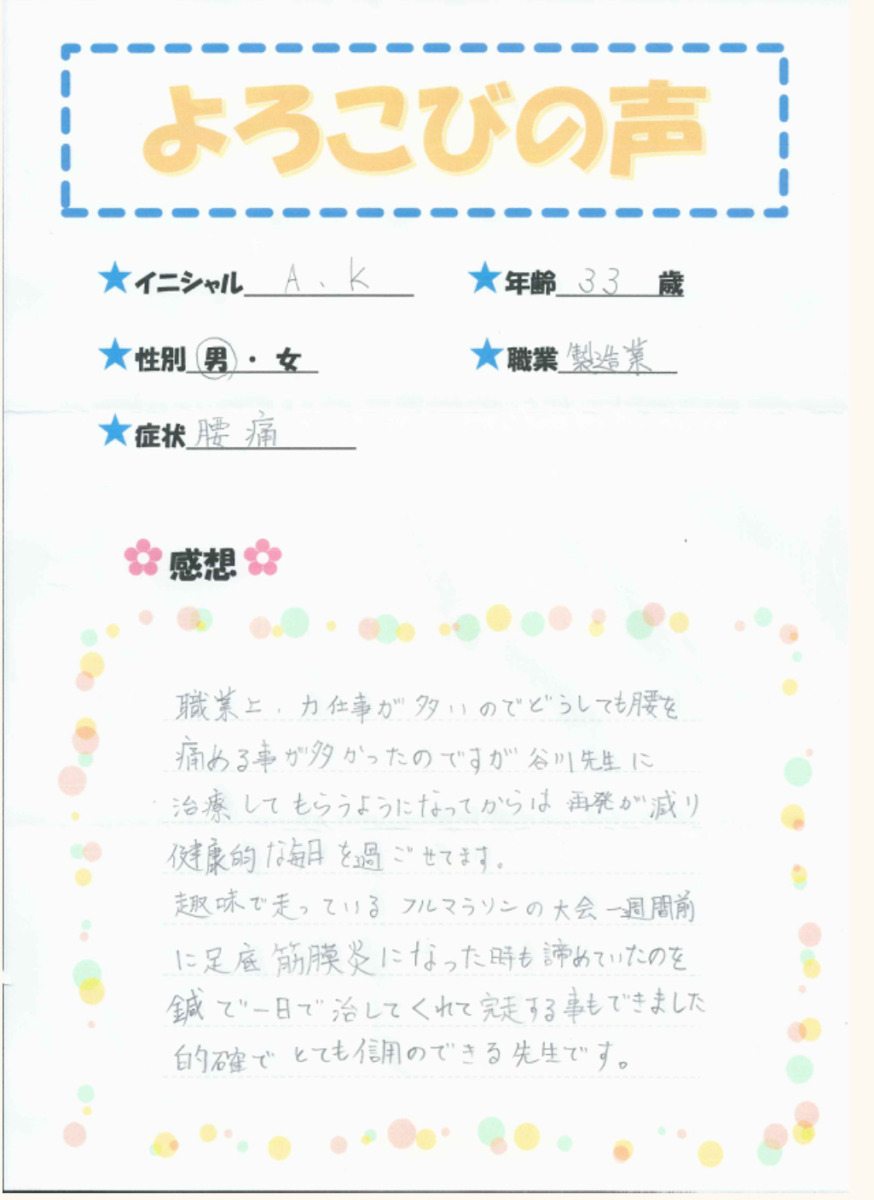 よろこびの声
★イニシャル A、K ★年齢 33 歳
★性別 男・女 ★職業 製造業
★症状 腰痛
感想
職業上、力仕事が多いのでどうしても腰を
痛める事が多かったのですが谷川先生に
治療してもらうようになってからは再発が減り
健康的な毎日を過ごせてます。
趣味で走っているフルマラソンの大会一週間前
に足底筋膜炎になった時も諦めていたのを
鍼で一日で治してくれて完走する事もできました
的確でとても信用のできる先生です。